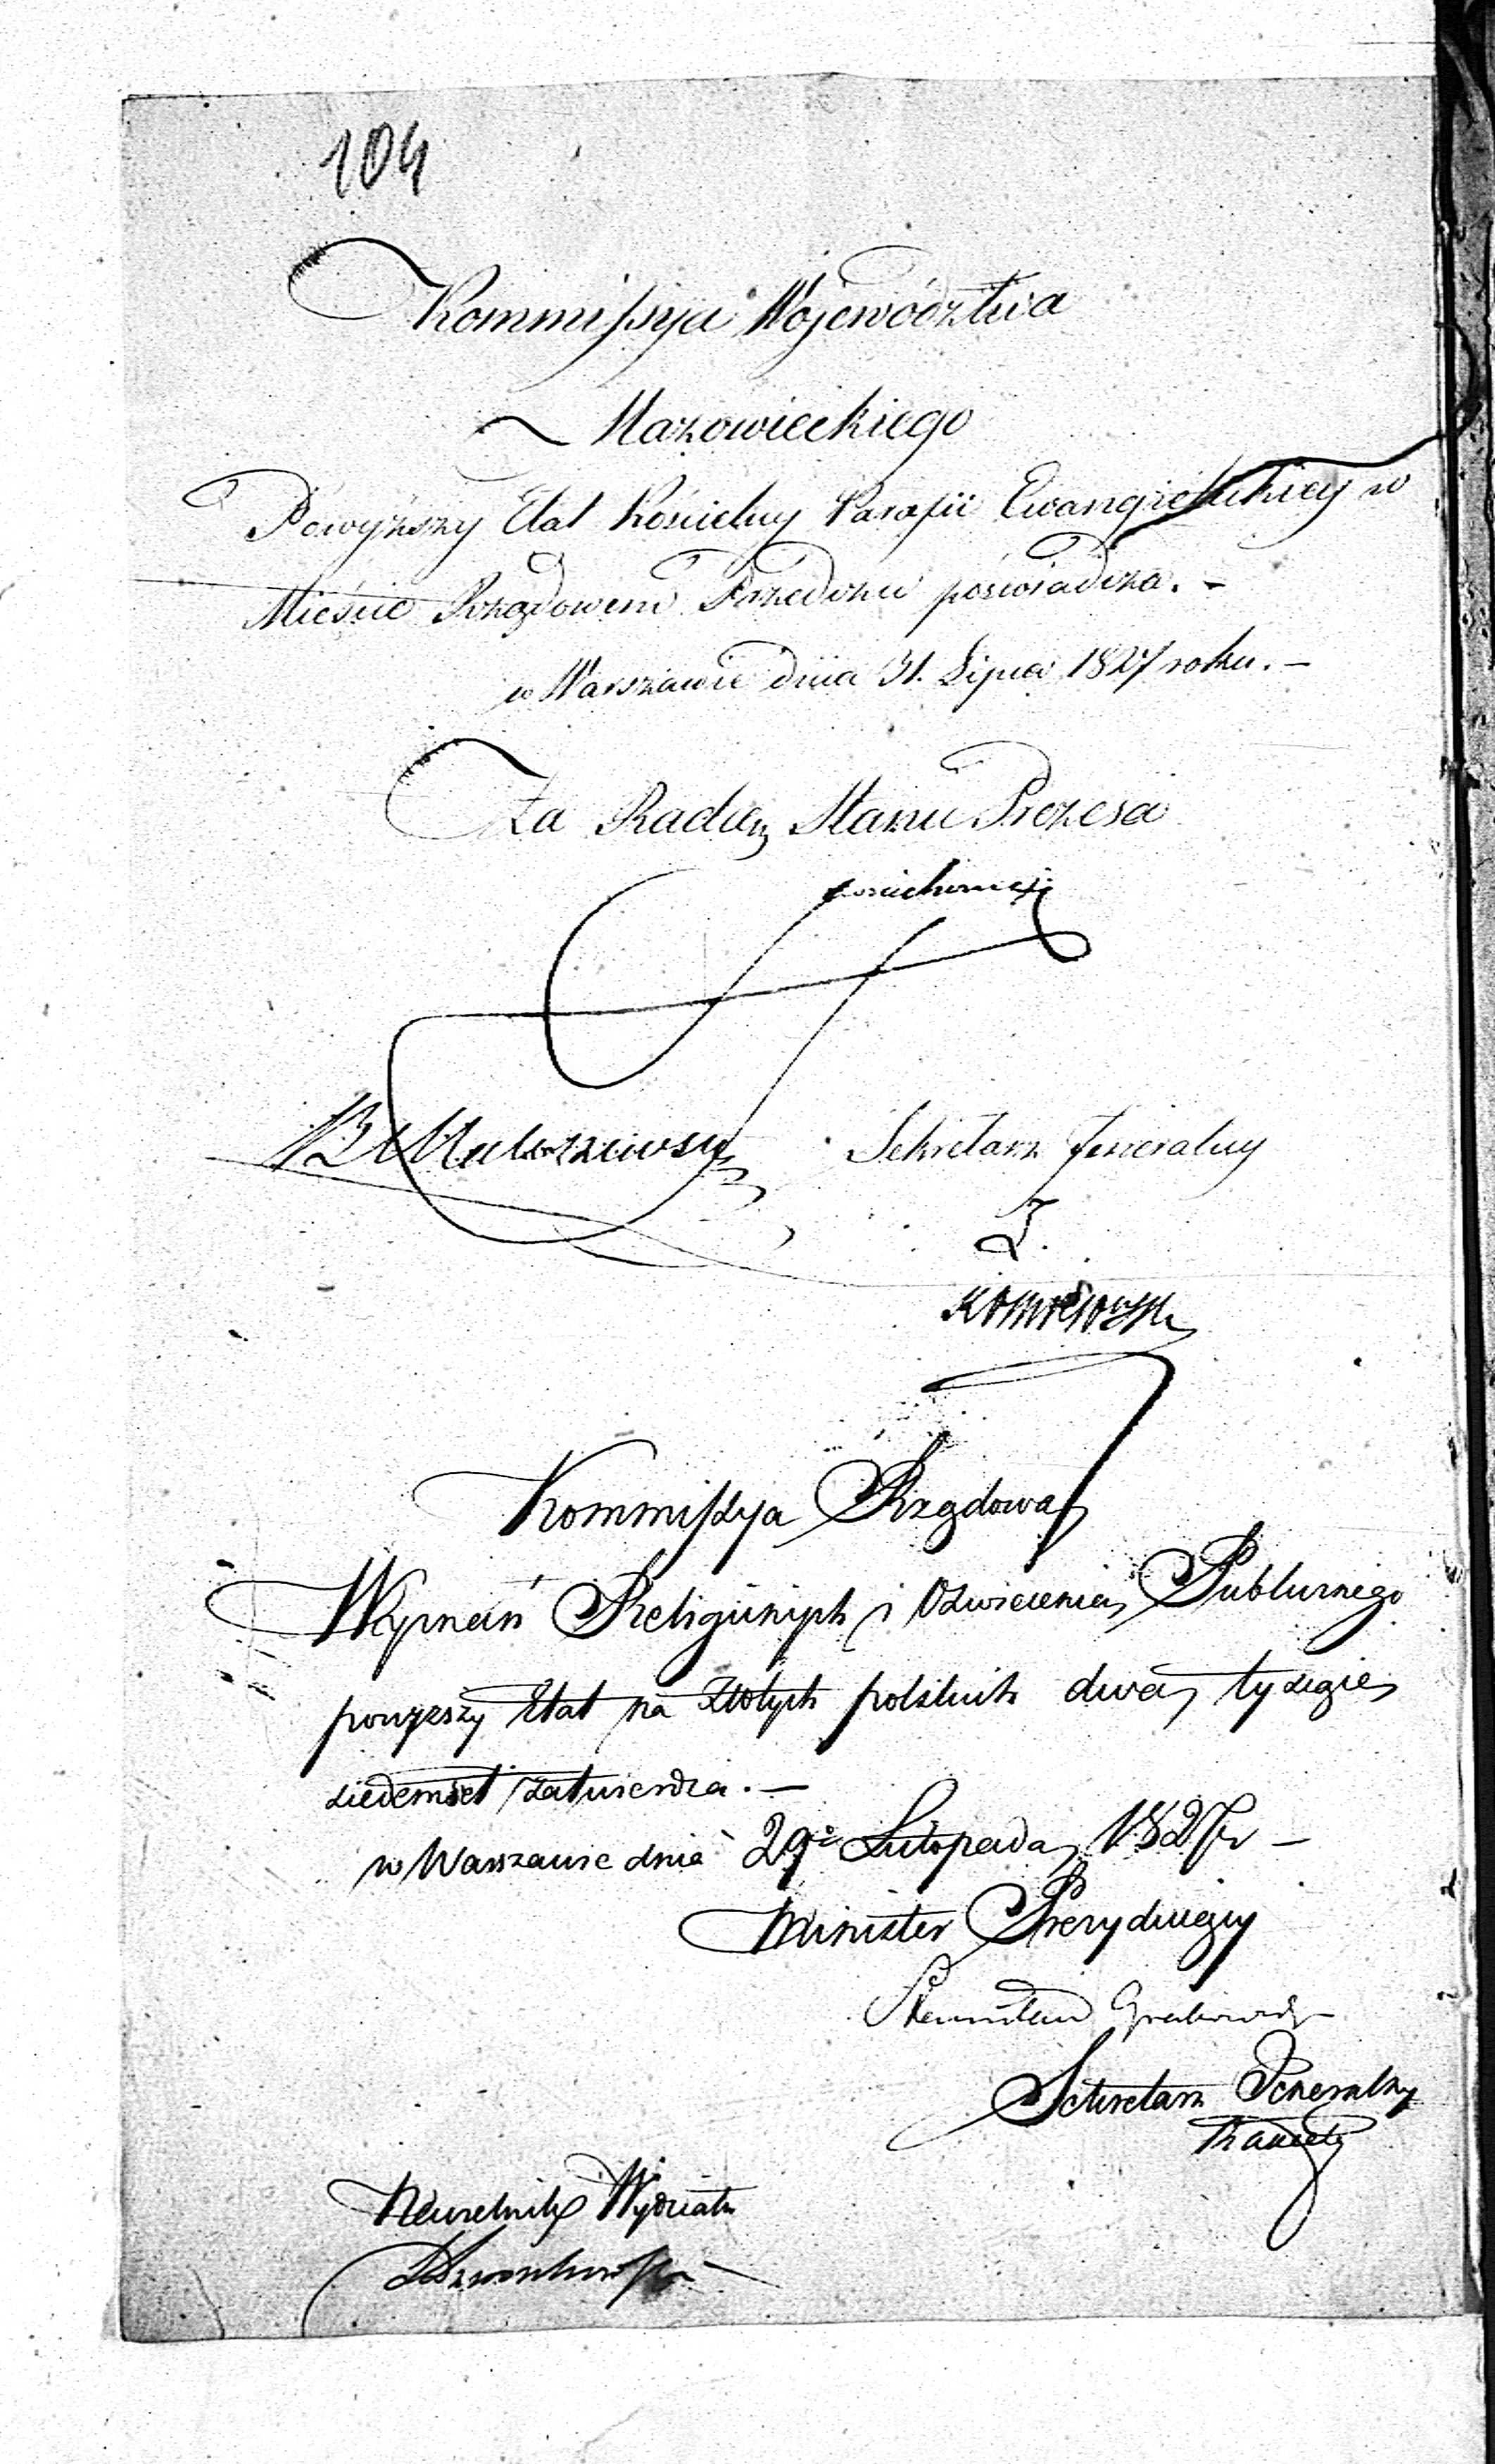 104
Kommissyia Województwa
Mazowieckiego
Powyższy Etat Kościelny Parafii Ewangielickiey w
Mieście Rządowem Przedczu poświadcza. –
w Warszawie dnia 31. Lipca 1827 roku. –
Za Radcę Stanu Prezesa
Sekretarz Jeneralny
Kommissya Rządowa
Wyznań Religijnych i Oświecenia Publicznego
powyższy Etat na Złotych polskich dwa tysiące
siedemset zatwierdza. –
w Warszawie dnia 29º Listopada 1827 r –
Minister Prezydujący
Stanisław Grabowski
Sekretarz Jeneralny
Naczelnik Wydziału